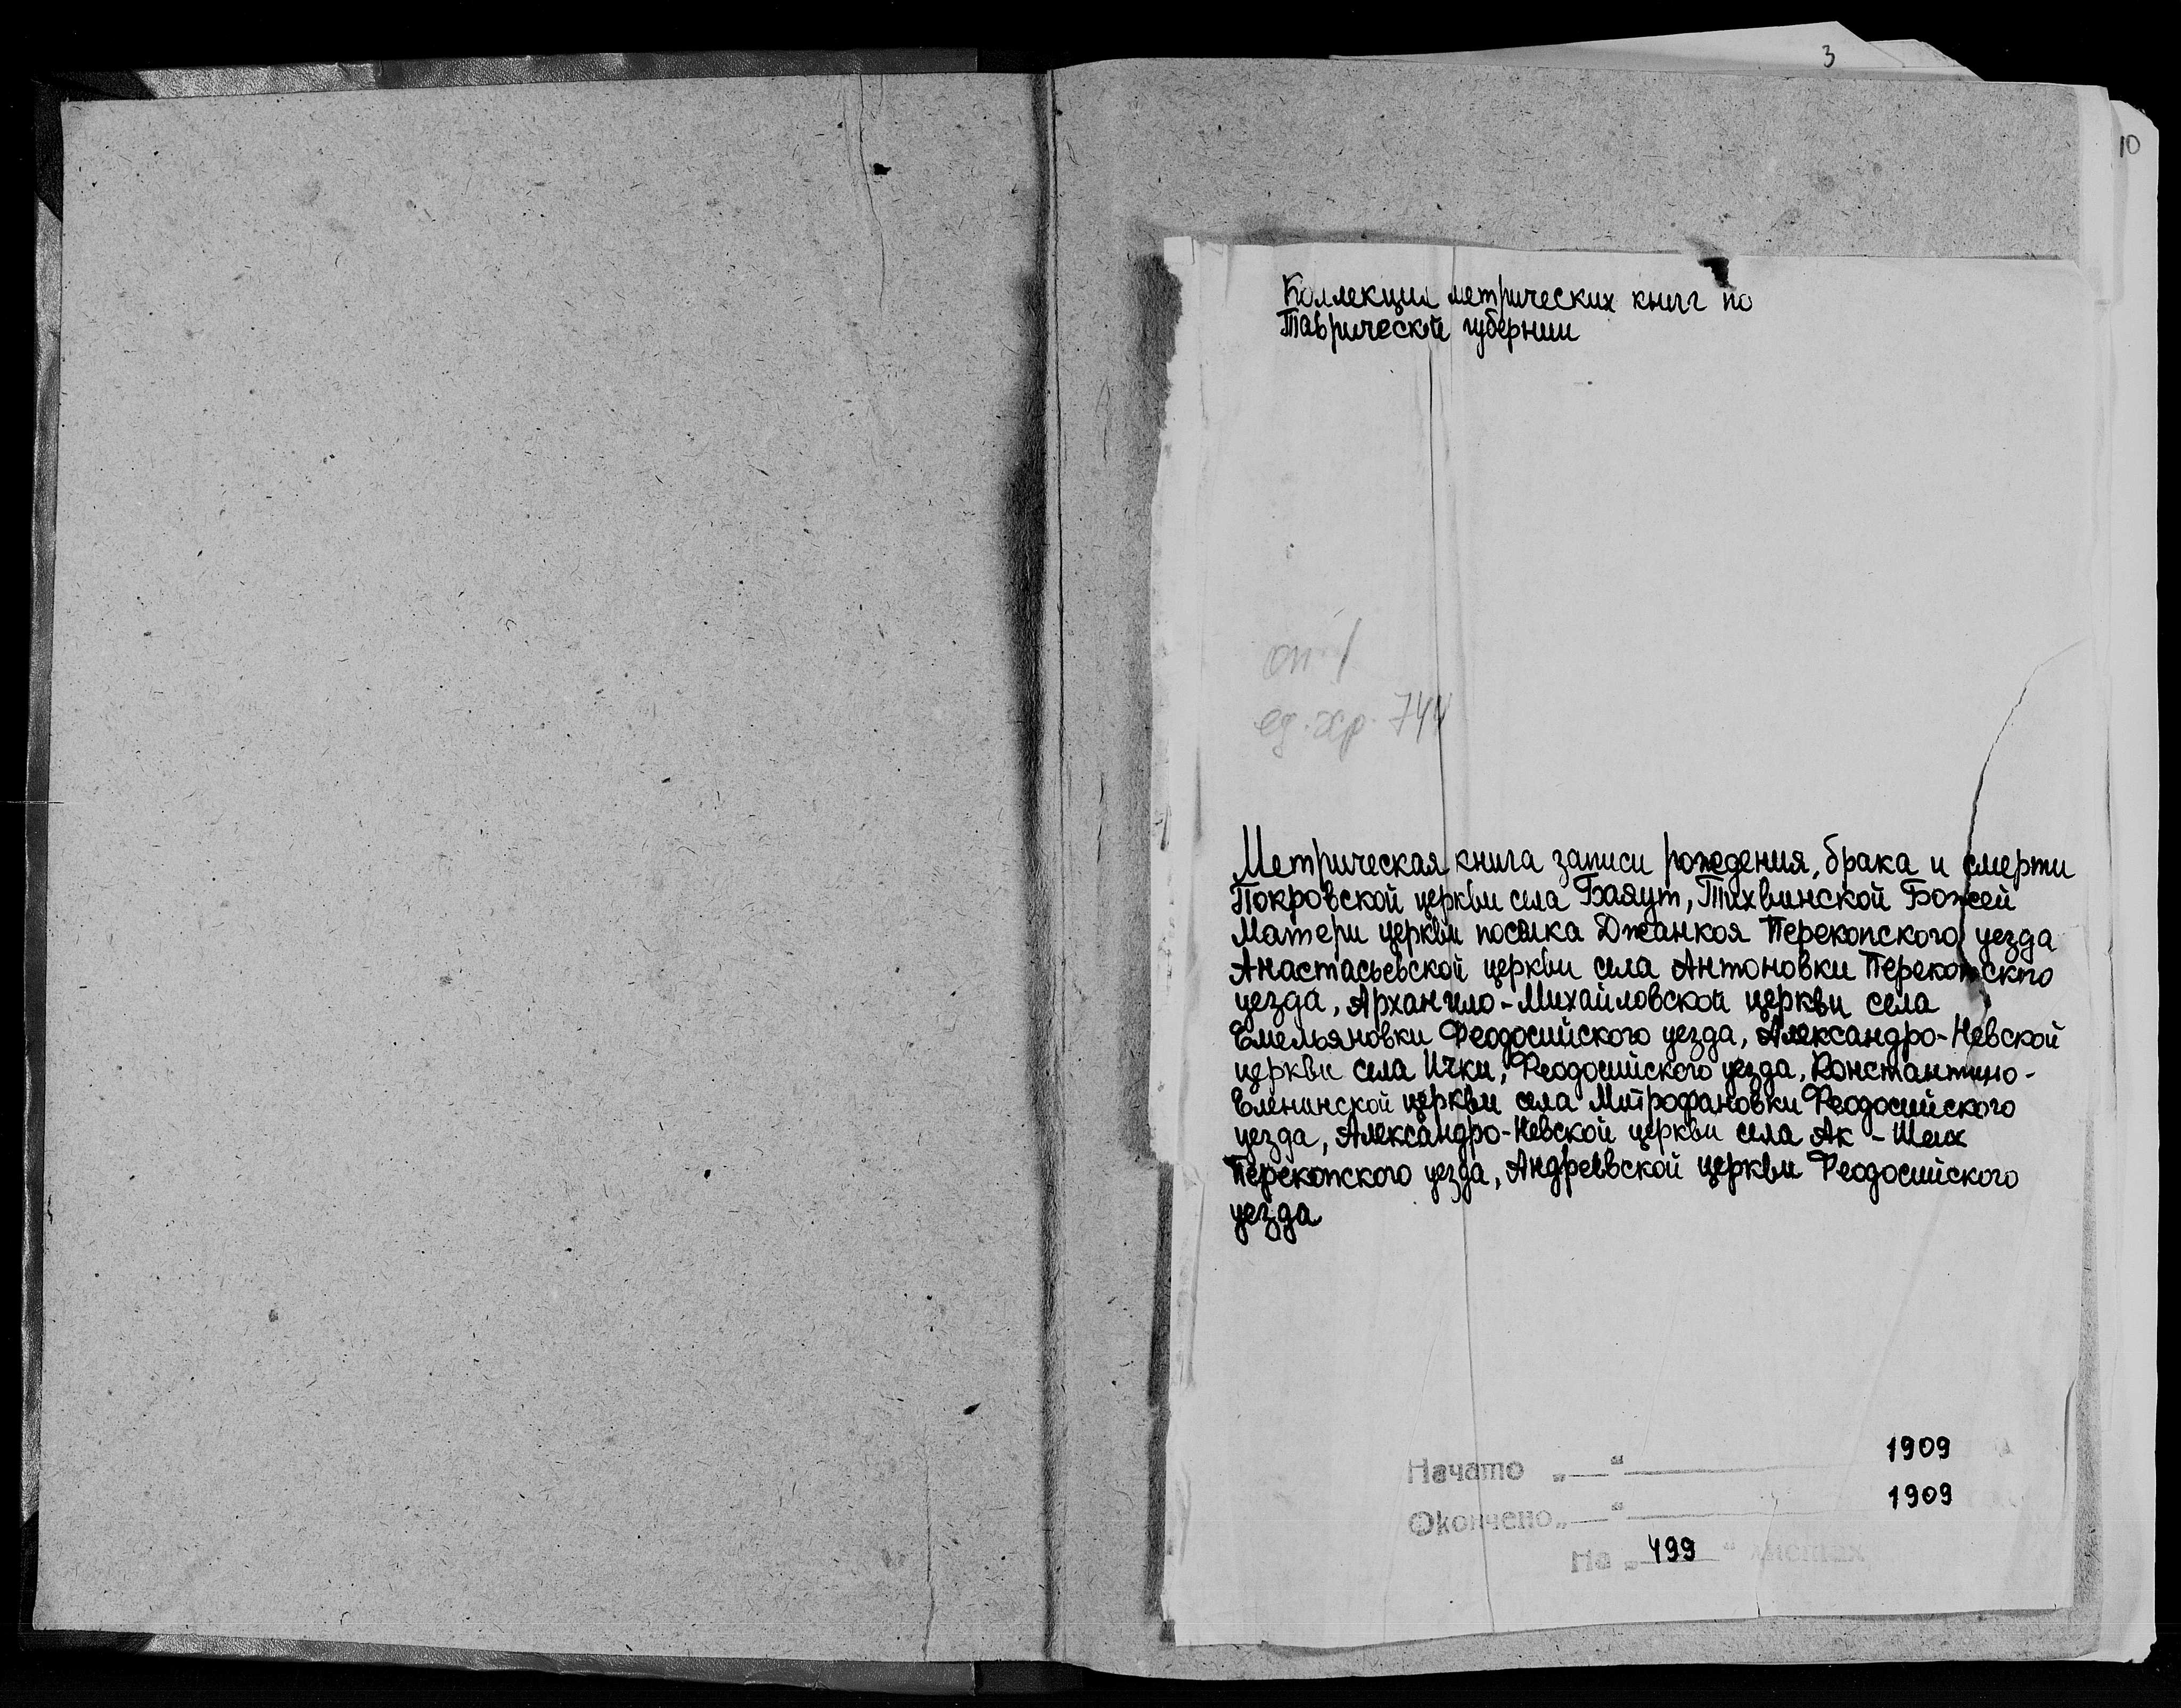 3
10
Коллекция метрических книг по
Таврической губернии
оп. 1
ед. хр. 744
Метрическая книга записи рождения, брака и смерти
Покровской церкви села Баяут, Тихвинской Божей
Матери церкви поселка Джанкоя Перекопского уезда
Анастасьевской церкви села Антоновки Перекопского
уезда, Архангило-Михайловской церкви села
Емельяновки Феодосийского уезда, Александро-Невской
церкви села Ички, Феодосийского уезда, Константино-
Еленинской церкви села Митрофановки Феодосийского
уезда, Александро-Невской церкви села Ак-Шеих
Перекопского уезда, Андреевской церкви Феодосийского
уезда
Начато „__“ 1909
Окончено „__“ 1909
На „499“ листах